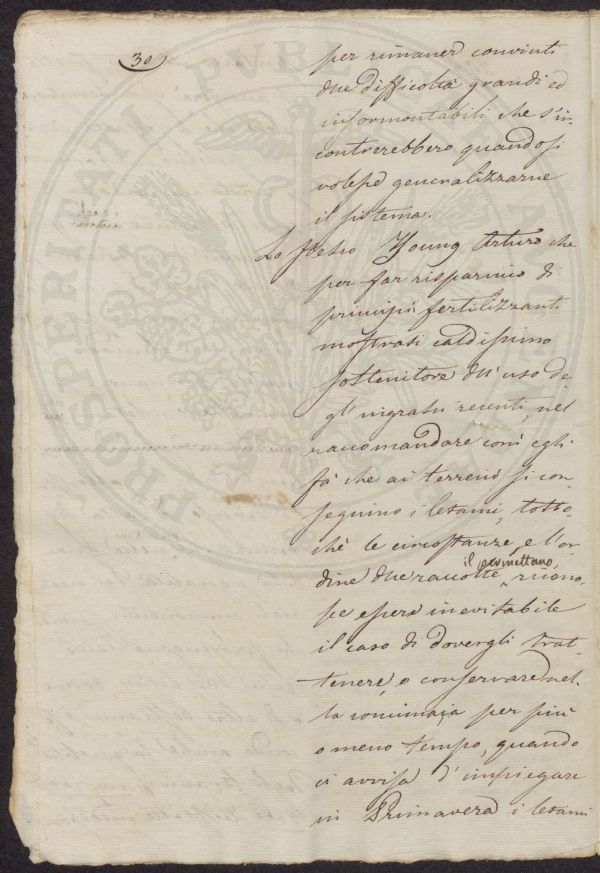 30
per rimaner convinti
due difficoltà grandi ed
insormontabili che s'in-
contrerebbero quando si
volesse generalizzarne
il sistema.
Lo stesso Young Arturo che
per far risparmio di
principii fertilizzanti
mostrasi caldissimo
sostenitore dell'uso de-
gl'ingrassi recenti, nel
raccomandare com'egli
fà che ai terreni si con-
seguino i letami, tosto-
chè le circostanze, e l'or-
dine due racolte il permettano, ricono-
sce essere inevitabile
il caso di dovergli trat-
tenere, o conservare nel-
la concimaja per più
o meno tempo, quando
ci avvisa d'impiegare
in Primavera i letami